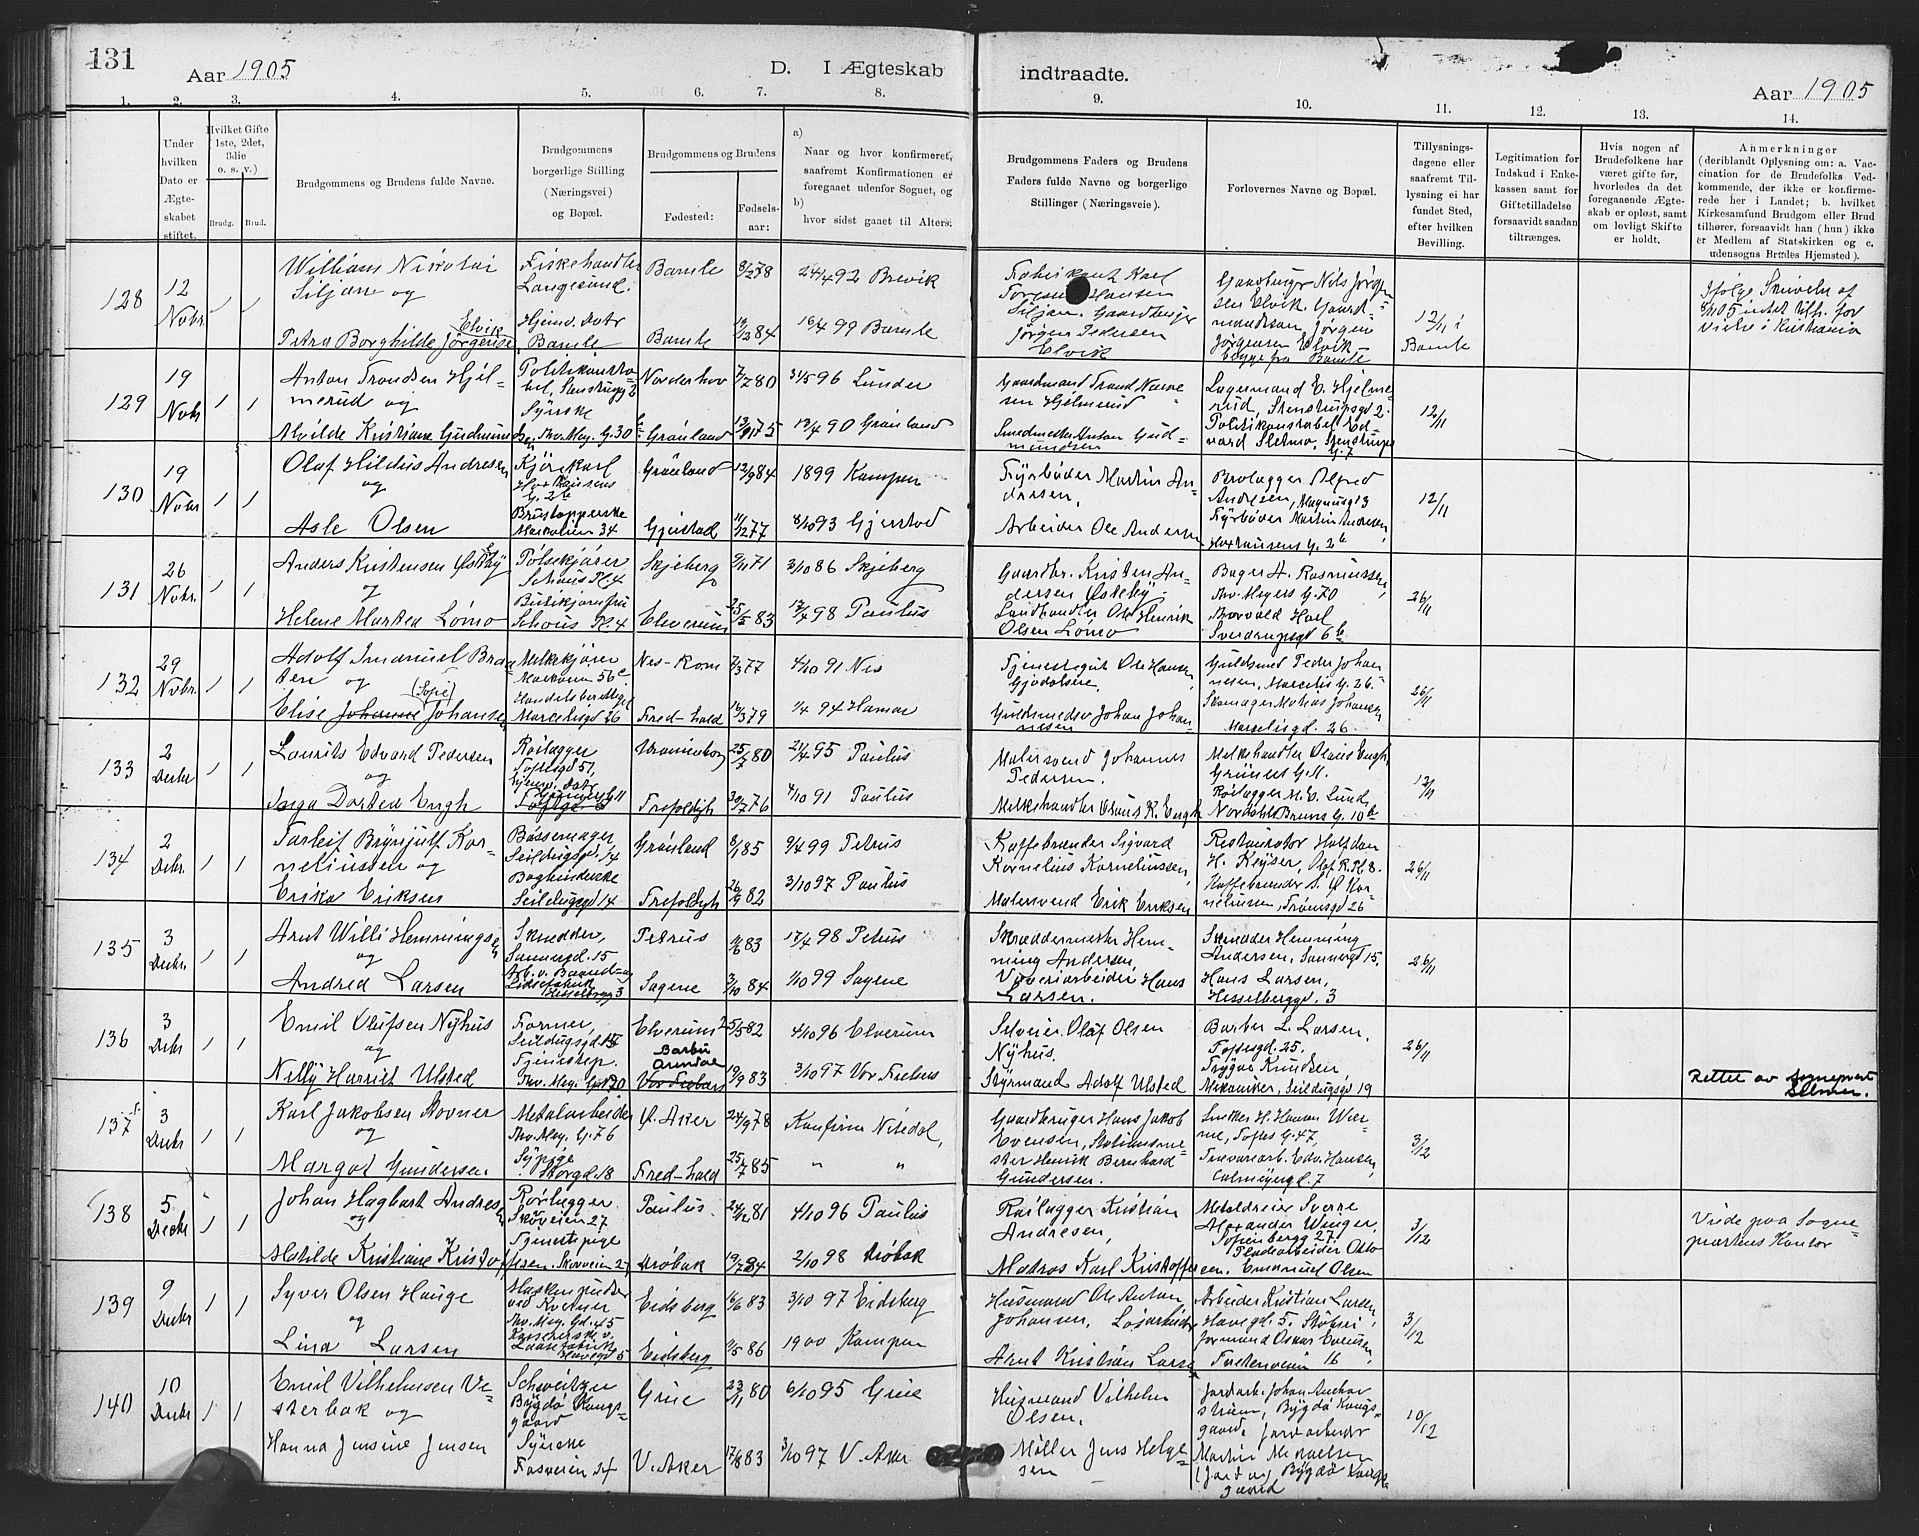 131
Aar 1905
D. I Ægteskab indtraadte.
Aar 1905
1. 2. 3. 4. 5. 6. 7. 8. 9. 10. 11. 12. 13. 14.
Under hvilken Dato er Ægteskabet stiftet.
Hvilket Gifte 1ste, 2det, 3die o. s. v.)
Brudg. Brud.
Brudgommens og Brudens fulde Navne.
Brudgommens borgerlige Stilling (Næringsvei) og Bopæl.
Brudgommens og Brudens
Fødested: Fødselsaar:
a) Naar og hvor konfirmeret, saafremt Konfirmationen er foregaaet udenfor Sognet, og
b) hvor sidst gaaet til Alters.
Brudgommens Faders og Brudens Faders fulde Navne og borgerlige Stillinger (Næringsveie).
Forlovernes Navne og Bopæl.
Tillysningsdagene eller saafremt Tillysning ei har fundet Sted, efter hvilken Bevilling.
Legitimation for Indskud i Enkekassen samt for Giftetilladelse forsaavidt saadan tiltrænges.
Hvis nogen af Brudefolkene har været gift før, hvorledes da det foregaaende Ægteskab er opløst, samt om lovligt Skifte er holdt.
Anmerkninger (deriblandt Oplysning om: a. Vaccination for de Brudefolks Vedkommende, der ikke er konfirmerede her i Landet; b. hvilket Kirkesamfund Brudgom eller Brud tilhører, forsaavidt han (hun) ikke er Medlem af Statskirken og c. udensogns Brudes Hjemsted).
128
12 Novbr.
1 1
William Nikolai
Siljan og
Elvik
Petra Borghilde Jørgense
Fiskehandler
Langesund.
Hjemv. Datr
Bamle
Bamle 8/2 78
Bamle 84
24/4 92 Brevik
16/4 99 Bamle
Fabrikant Karl
Hansen
Siljan. Gaardbruger
Jørgen Pedersen
Elvik
Gaardbruger Nils Jørgen
sen Elvik. Gaard
Jørgen
Jørgensen Elvik
begge fra Bamle
12/11 i
Bamle
Ifølge Skrivelse af
Vielse i Kristiania
129
19 Novbr
1 1
Anton Trondsen Hjel-
merud og
Alvilde Kristiane Gudmund
Politikonsta-
bel, Stenstrupg 2
Syerske
sen, Thv. Mey. G. 30
Norderhov 7/7 80
Grønland 75
31/5 96 Lunder
13/4 90 Grønland
Gaardmand Trond Narve
sen Hjelmerud
Smedmester Anton Gud-
mundsen
Lagermand E. Hjelme
rud, Stenstrupsgd 2.
Politikonstabel Ed-
vard Sletmo, Stenstrups
G. 7
12/11
130
19 Novbr
1 1
Olaf Hildus Andresen
og
Asle Olsen
Kjørekarl
Haxthausens
G. 2b
Brystopperske
34
Grønland 12/9 84
Gjerstad 11/12 77
1899 Kampen
8/10 93 Gjerstad
Fyrbøder Martin An-
dresen,
Arbeider Ole Andersen
Brolægger Alfred
Andresen, Magnusg 13
Fyrbøder Martin Andresen,
Haxthausens G. 2b
12/11
131
26 Novbr.
1 1
Anders Kristensen Østeby
og
Helene Martea Lømo
Pølsekjører
Schous Pl. 4
Butikjomfru
Schous Pl. 4
Skjeberg 9/11 71
Elverum 25/5 83
3/10 86 Skjeberg
17/4 98 Paulus
Gaardbr. Kristen An-
dersen Østeby.
Landhandler Ole Henrik
Olsen Lømo
Bager A. Rasmussen,
Thv. Meyers G. 70
Thorvald Hoel
Sverdrupsgd 6b
26/11
132
29 Novbr.
1 1
Adolf Imanuel Braa
ten og
(Sofie)
Elise Johanne Johansen
Melkekjører
Markveien 56c
Handelsberettiget
Marcelisgd 26
Nes-Rom 7/3 77
Fred-hald 16/3 79
4/10 91 Nes
1/4 94 Hamar
Tjenestegut Ole Hansen
Gjødalseie.
Guldsmed Johan Johan
nesen
Guldsmed Peder Johan
nesen, Marcelis G. 26.
Skomager Mathias Johansen
Marcelisgd. 26.
26/11
133
2 Decbr
1 1
Laurits Edvard Pedersen
og
Inga Dortea Engh
Rørlægger
Toftesgd 51,
Hjemv. Datr
Uranienborg 25/7 80
Trefoldigh 30/7 76
21/4 95 Paulus
4/10 91 Paulus
Malersvend Johannes
Pedersen.
Melkehandler Olaus K. Engh
Melkehandler Olaus Engh,
Grüners G. 11.
Rørlægger M. C. Lund,
Nordahl Bruns G. 10b
12/11
134
2 Decbr.
1 1
Torleif Brynjulf Kor-
neliussen og
Erika Eriksen
Bøssemager
Seildugsgd. 14
Bogbinderske
Seildugsgd 14
Grønland 8/1 85
Trefoldigh 26/9 82
9/4 99 Petrus
3/10 97 Paulus
Kaffebrænder Sigvard
Kornelius Korneliussen,
Malersvend Erik Eriksen
Restauratør Halfdan
H. Keyser, Olaf R. Pl. 8.
Kaffebrænder S. Kor-
neliussen, Tromsgd 26
26/11
135
3 Decbr.
1 1
Arnt Willi Hemmingsen
og
Andrea Larsen
Skrædder,
Sannergd. 15
Hesselbergg 3
Petrus 83
Sagene 3/10 84
17/4 98 Petrus
1/10 99 Sagene
Skræddermester Hem-
ming Andersen,
Væveriarbeider Hans
Larsen.
Skrædder Hemming
Andersen, Sannergd 15,
Hans Larsen,
Hesselberggd. 3
26/11
136
3 Decbr
1 1
Emil Olufsen Nyhus
og
Nelly Harriet Ulsted
Former,
Seildugsgd. 15
Tjenestep.
Thv. Mey. G. 20
Elverum 25/5 82
Barbu
Arendal
Vor Frelsers 19/9 83
4/10 96 Elverum
3/10 97 Vor Frelsers
Selveier Olaf Olsen
Nyhus.
Styrmand Adolf Ulsted
Barber L. Larsen,
Toftesgd. 25,
Trygve Knudsen,
Mekaniker, Seildugsgd 19
26/11
Rettet av sogneprest
137
3 Decbr
1 1
Karl Jakobsen Stovner
og
Margot Gundersen.
Metalarbeider
Thv. Mey. G. 76
Sypige
Storgd. 18
Ø. Aker 24/9 78
Fred-hald 25/7 85
Konfirm Nitedal,
" "
Gaardbruger Hans Jakob
Evensen, Stationsme-
ster Henrik Bernhard
Gundersen.
Snekker H. Hansen Wier-
me, Toftes G. 47,
Træarb. Edv. Hansen,
Calmeyergd. 7
3/12
138
5 Decbr
1 1
Johan Hagbart Andresen
og
Matilde Kristiane Kristof
Rørlægger
Skovveien 27
Tjenestepige
fersen. Skovveien 27
Paulus. 24/12 81
Drøbak 19/7 84
4/10 96 Paulus
2/10 98 Drøbak
Rørlægger Kristian
Andresen,
Matros Karl Kristoffersen.
Metaldreier Sverre
Alexander Winger,
Sofienbergg 27.
Pladearbeider Otto
Emanuel Olsen
3/12
Viede paa Sogne-
præstens Kontor
139
9 Decbr
1 1
Syver Olsen Hauge
og
Lina Larsen
Maskinpudser
ved Kværner
Thv. Mey. Gd. 45
Havegd 5
Eidsberg 16/6 83
Eidsberg 11/5 86
3/10 97 Eidsberg
1900 Kampen
Husmand Ole Anton
Johansen, Løsarbeider
Arnt Kristian Larsen
Arbeider Kristian Larsen,
Havegd. 5. Støberi
formand Oskar Evensen,
16
3/12
140
10 Decbr
1 1
Emil Vilhelmsen Ve-
sterbak og
Hanna Jensine Jensen
Schweitzer
Bygdø Kongs-
gaard
Syerske
Fasveien 24
Grue 23/1 80
V. Aker 17/8 83
6/10 95 Grue
3/10 97 V. Aker
Husmand Vilhelm
Olsen.
Møller Jens Helge-
sen
Jordarb. Johan Anchor
strøm, Bygdø Kongs-
gaard, Jordarbeider
Martin Mikaelsen
(Jordarb) Bygdø Kongs-
gaard
10/12